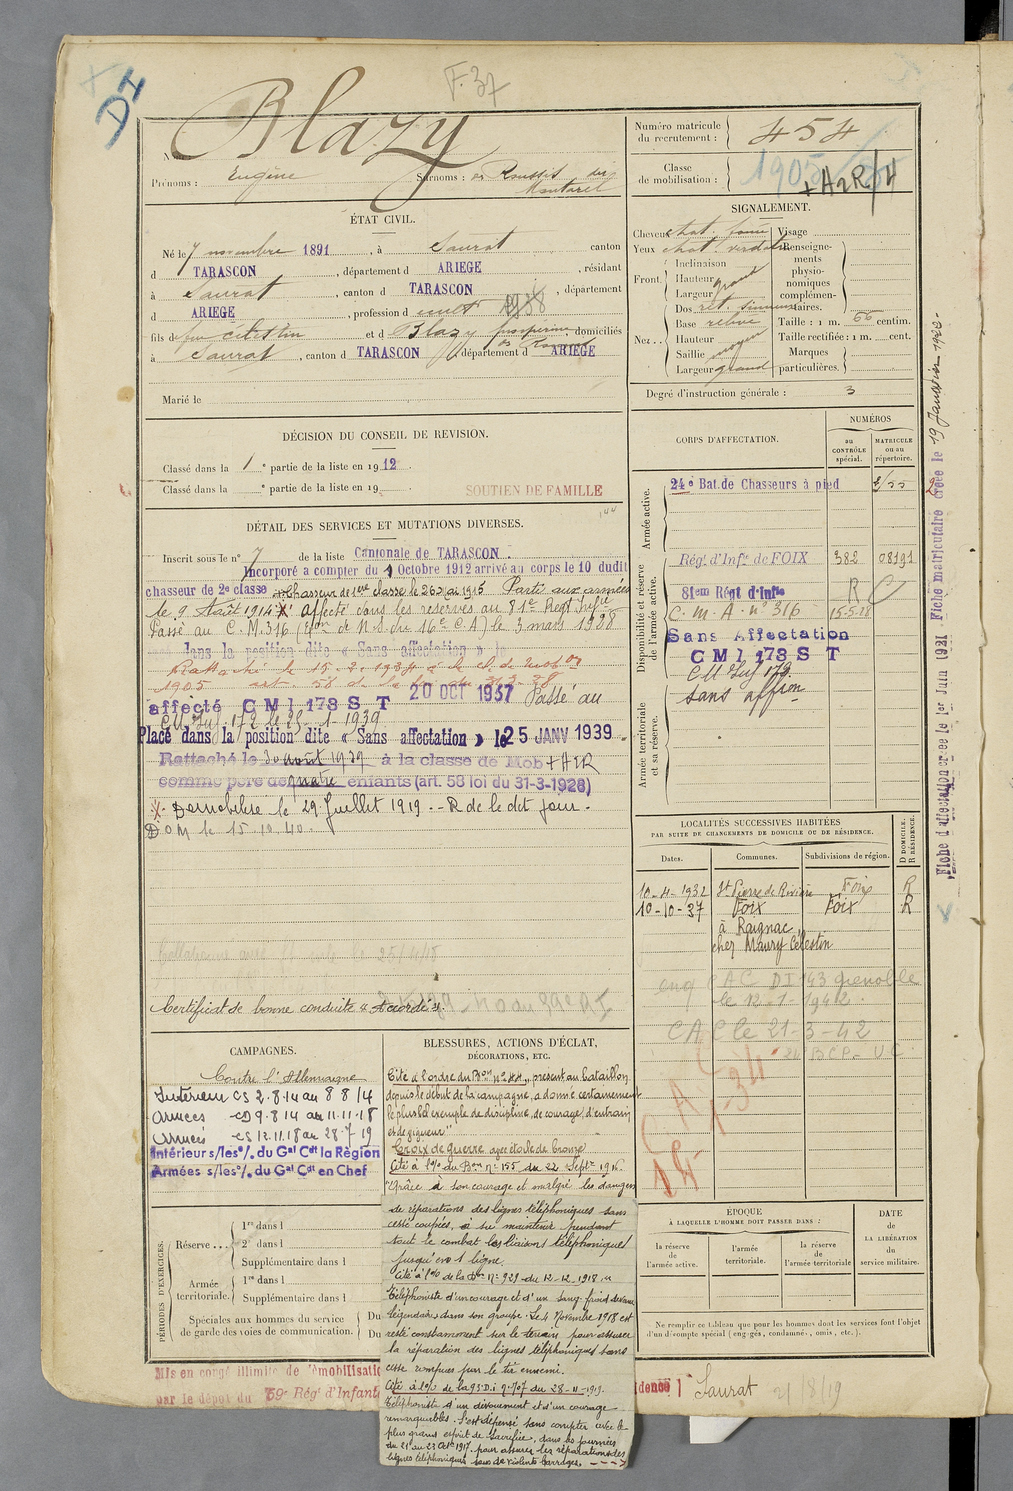 F. 37
DI
Blazy
Nom :
Prénoms : Eugène Surnoms : es Roussit dit
Montarel
Numéro matricule
du recrutement : 454
Classe
de mobilisation : 1905
+A2R/4
ÉTAT CIVIL.
Né le 7 novembre 1891, à Saurat canton
d TARASCON, département d ARIEGE, résidant
à Saurat, canton d TARASCON, département
d ARIEGE, profession d
fils de feu célestin et d Blazy prosperine, domiciliés
à Saurat, canton d TARASCON, département d ARIEGE
Marié le
SIGNALEMENT.
Cheveux chat. foncé Visage
Yeux chat. verdâtre Renseigne-
ments
physio-
nomiques
complémen-
taires.
Front. Inclinaison
Hauteur grand
Largeur
Nez... Dos ret. sinueux
Base relevé
Hauteur moyen
Saillie
Largeur grand
Taille : 1 m. 66 centim.
Taille rectifiée : 1 m. cent.
Marques
particulières.
Degré d'instruction générale : 3
DÉCISION DU CONSEIL DE REVISION.
Classé dans la 1e partie de la liste en 1912
Classé dans la e partie de la liste en 19
SOUTIEN DE FAMILLE
DÉTAIL DES SERVICES ET MUTATIONS DIVERSES.
Inscrit sous le n° 7 de la liste Cantonale de TARASCON
Incorporé a compter du 9 Octobre 1912 arrivé au corps le 10 dudit
chasseur de 2e classe Chasseur de 1ere classe le 26 mai 1915 Parti aux armées
le 9 Août 1914 X Affecté dans les réserves au 81e Regt Infie
Passé au C. M. 316 (Eon de N.S. du 16e C.A) le 3 mars 1928
dans la position dite « Sans affectation » le
Rattaché le 15-2-1934 à la cl. de mobon
1905 art 58 de la loi du 31-3-28
affecté CMI 173 S T 20 OCT 1937 Passé au
CM Inf 172 le 25-1-1939
Placé dans la position dite « Sans affectation » le 25 JANV 1939
Rattaché le 30 août 1939 à la classe de Mob +A2R
comme père de quatre enfants (art. 58 loi du 31-3-1928)
X - Démobilisé le 29 Juillet 1919. - R de le dit jour.
DOM le 15.10.40.
Certificat de bonne conduite « Accordé ».
CORPS D'AFFECTATION.
NUMÉROS
au
CONTRÔLE
spécial.
MATRICULE
ou au
répertoire.
Armée active.
24e Bat. de Chasseurs à pied
Disponibilité et réserve
de l'armée active.
Régt d'Infie de FOIX 382 08191
81em Régt d'Infie R
C. M. A. n° 316 15-5-28
Sans Affectation
CMI 173 S T
CM Inf 172
sans affon
Armée territoriale
et sa réserve.
19 Janvier 1920.
Fiche matriculaire créée le
Fiche d'affectation créée le 1er Juin 1921
LOCALITÉS SUCCESSIVES HABITÉES
PAR SUITE DE CHANGEMENTS DE DOMICILE OU DE RÉSIDENCE.
Dates. Communes. Subdivisions de région. D DOMICILE. R RÉSIDENCE.
10-4-1932 St Pierre de Rivière Foix R
10-10-37 Foix Foix R
à Raignac
chez Maury Célestin
eng CAC DI 43 grenoble
le 12-1-1942
CAC le 21-3-42
CAMPAGNES.
Contre l'Allemagne
Intérieur CS 2.8.14 au 8 8 14
Armées CD 9.8 14 au 11.11.18
Armées CS 12.11.18 au 28.7 19
Intérieur s/les o/. du Gal Cdt la Région
Armées s/les o/. du Gal Cdt en Chef
BLESSURES, ACTIONS D'ÉCLAT,
DÉCORATIONS, ETC.
Cité à l'ordre du Bon n° 44 "présent au bataillon
depuis le début de la campagne, a donné certainement
le plus bel exemple de discipline, de courage, d'entrain
et de vigueur"
Croix de guerre avec étoile de bronze
Cité à l'o/o du Bon n° 155 du 22 Septe 1916.
"Grâce à son courage et malgré les dangers
de réparations des lignes téléphoniques sans
cesse coupées, a su maintenir pendant
tout le combat les liaisons téléphoniques
jusqu'en 1 ligne
Cité à l'o/o de la Don N° 929 du 12-12-1918
Téléphoniste d'un courage et d'un sang-froid devenu
légendaires dans son groupe. Le 4 Novembre 1918 est
resté constamment sur le terrain pour assurer
la réparation des lignes téléphoniques sans
cesse rompues par le tir ennemi.
Cité à l'o/o de la 93 D.i n° 707 du 28-11-1919.
Téléphoniste d'un dévouement et d'un courage
remarquables. S'est dépensé sans compter avec le
plus grand esprit de Sacrifice, dans les journées
du 21 au 23 Octe 1917, pour assurer les réparations des
lignes téléphoniques sous de violents barrages.
PÉRIODES D'EXERCICES.
Réserve... 1re dans l
2e dans l
Supplémentaire dans l
Armée
territoriale. 1re dans l
Supplémentaire dans l
Spéciales aux hommes du service
de garde des voies de communication. Du
Du
ÉPOQUE
À LAQUELLE L'HOMME DOIT PASSER DANS :
la réserve
de l'armée active.
l'armée
territoriale.
la réserve
de l'armée territoriale
DATE
de
LA LIBÉRATION
du
service militaire.
Ne remplir ce tableau que pour les hommes dont les services font l'objet
d'un décompte spécial (engagés, condamnés, omis, etc.).
Mis en congé illimité de démobilisatio
par le dépôt du 59e Régt d'Infant
idence 1 Saurat